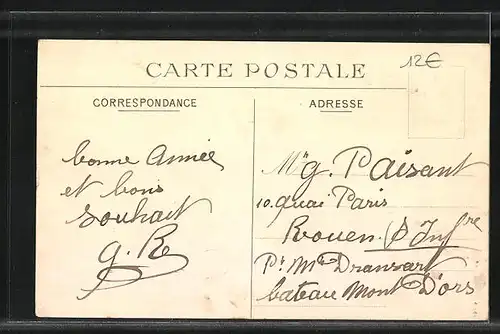 12€
CARTE POSTALE
CORRESPONDANCE
ADRESSE
bonne Année
et bons
souhait
G. Re
Mr g. Paisant
10. quai Paris
Rouen. (S Infre
Pr Mr Dransart
bateau Mont D'ors